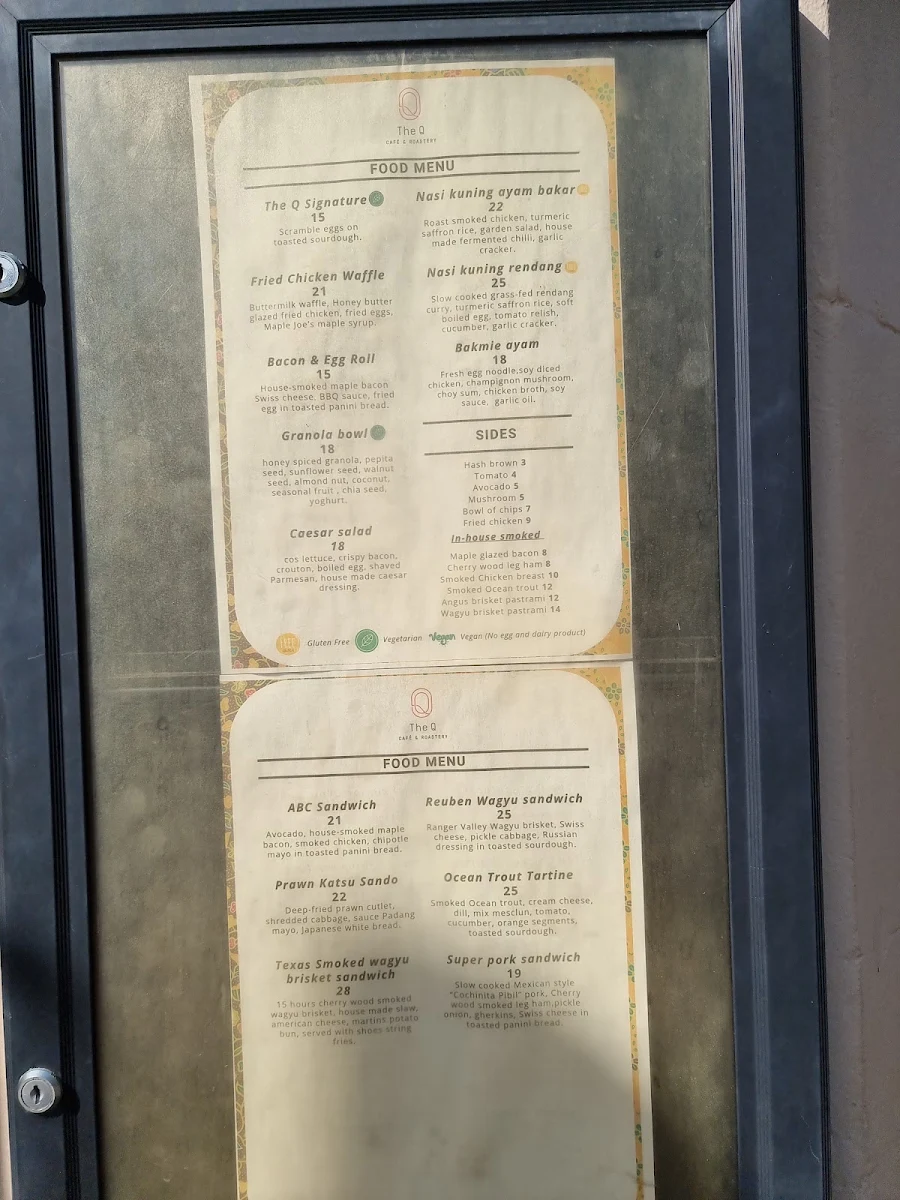 The Q
CAFÉ & ROASTERY
FOOD MENU
The Q Signature
15
Scramble eggs on
toasted sourdough.
Fried Chicken Waffle
21
Buttermilk waffle, Honey butter
glazed fried chicken, fried eggs,
Maple Joe's maple syrup.
Bacon & Egg Roll
15
House-smoked maple bacon
Swiss cheese, BBQ sauce, fried
egg in toasted panini bread.
Granola bowl
18
honey spiced granola, pepita
seed, sunflower seed, walnut
seed, almond nut, coconut,
seasonal fruit , chia seed,
yoghurt.
Caesar salad
18
cos lettuce, crispy bacon,
crouton, boiled egg, shaved
Parmesan, house made caesar
dressing.
Nasi kuning ayam bakar
22
Roast smoked chicken, turmeric
saffron rice, garden salad, house
made fermented chilli, garlic
cracker.
Nasi kuning rendang
25
Slow cooked grass-fed rendang
curry, turmeric saffron rice, soft
boiled egg, tomato relish,
cucumber, garlic cracker.
Bakmie ayam
18
Fresh egg noodle,soy diced
chicken, champignon mushroom,
choy sum, chicken broth, soy
sauce, garlic oil.
SIDES
Hash brown 3
Tomato 4
Avocado 5
Mushroom 5
Bowl of chips 7
Fried chicken 9
In-house smoked
Maple glazed bacon 8
Cherry wood leg ham 8
Smoked Chicken breast 10
Smoked Ocean trout 12
Angus brisket pastrami 12
Wagyu brisket pastrami 14
Gluten Free Vegetarian Vegan Vegan (No egg and dairy product)
The Q
CAFÉ & ROASTERY
FOOD MENU
ABC Sandwich
21
Avocado, house-smoked maple
bacon, smoked chicken, chipotle
mayo in toasted panini bread.
Prawn Katsu Sando
22
Deep-fried prawn cutlet,
shredded cabbage, sauce Padang
mayo, Japanese white bread.
Texas Smoked wagyu
brisket sandwich
28
15 hours cherry wood smoked
wagyu brisket, house made slaw,
american cheese, martins potato
bun, served with shoes string
fries.
Reuben Wagyu sandwich
25
Ranger Valley Wagyu brisket, Swiss
cheese, pickle cabbage, Russian
dressing in toasted sourdough.
Ocean Trout Tartine
25
Smoked Ocean trout, cream cheese,
dill, mix mesclun, tomato,
cucumber, orange segments,
toasted sourdough.
Super pork sandwich
19
Slow cooked Mexican style
"Cochinita Pibil" pork, Cherry
wood smoked leg ham,pickle
onion, gherkins, Swiss cheese in
toasted panini bread.